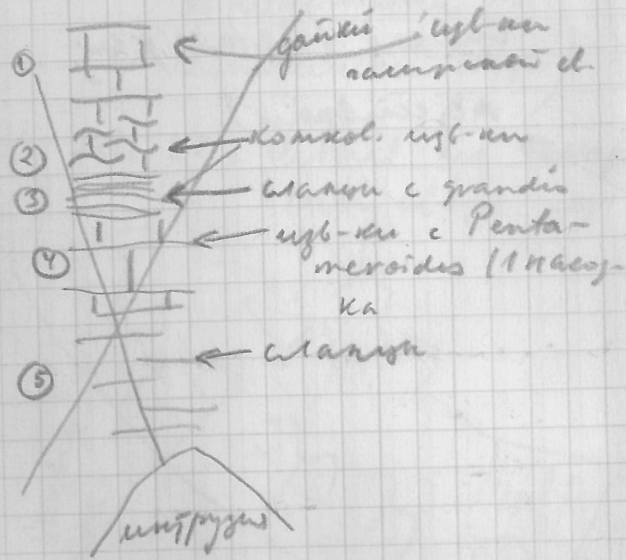 ① дайки изв-ки
② комков. изв-ки
③ сланцы с grandis
изв-ки с Penta-
④ meroides (1 наход-
ка
сланцы
⑤
интрузия